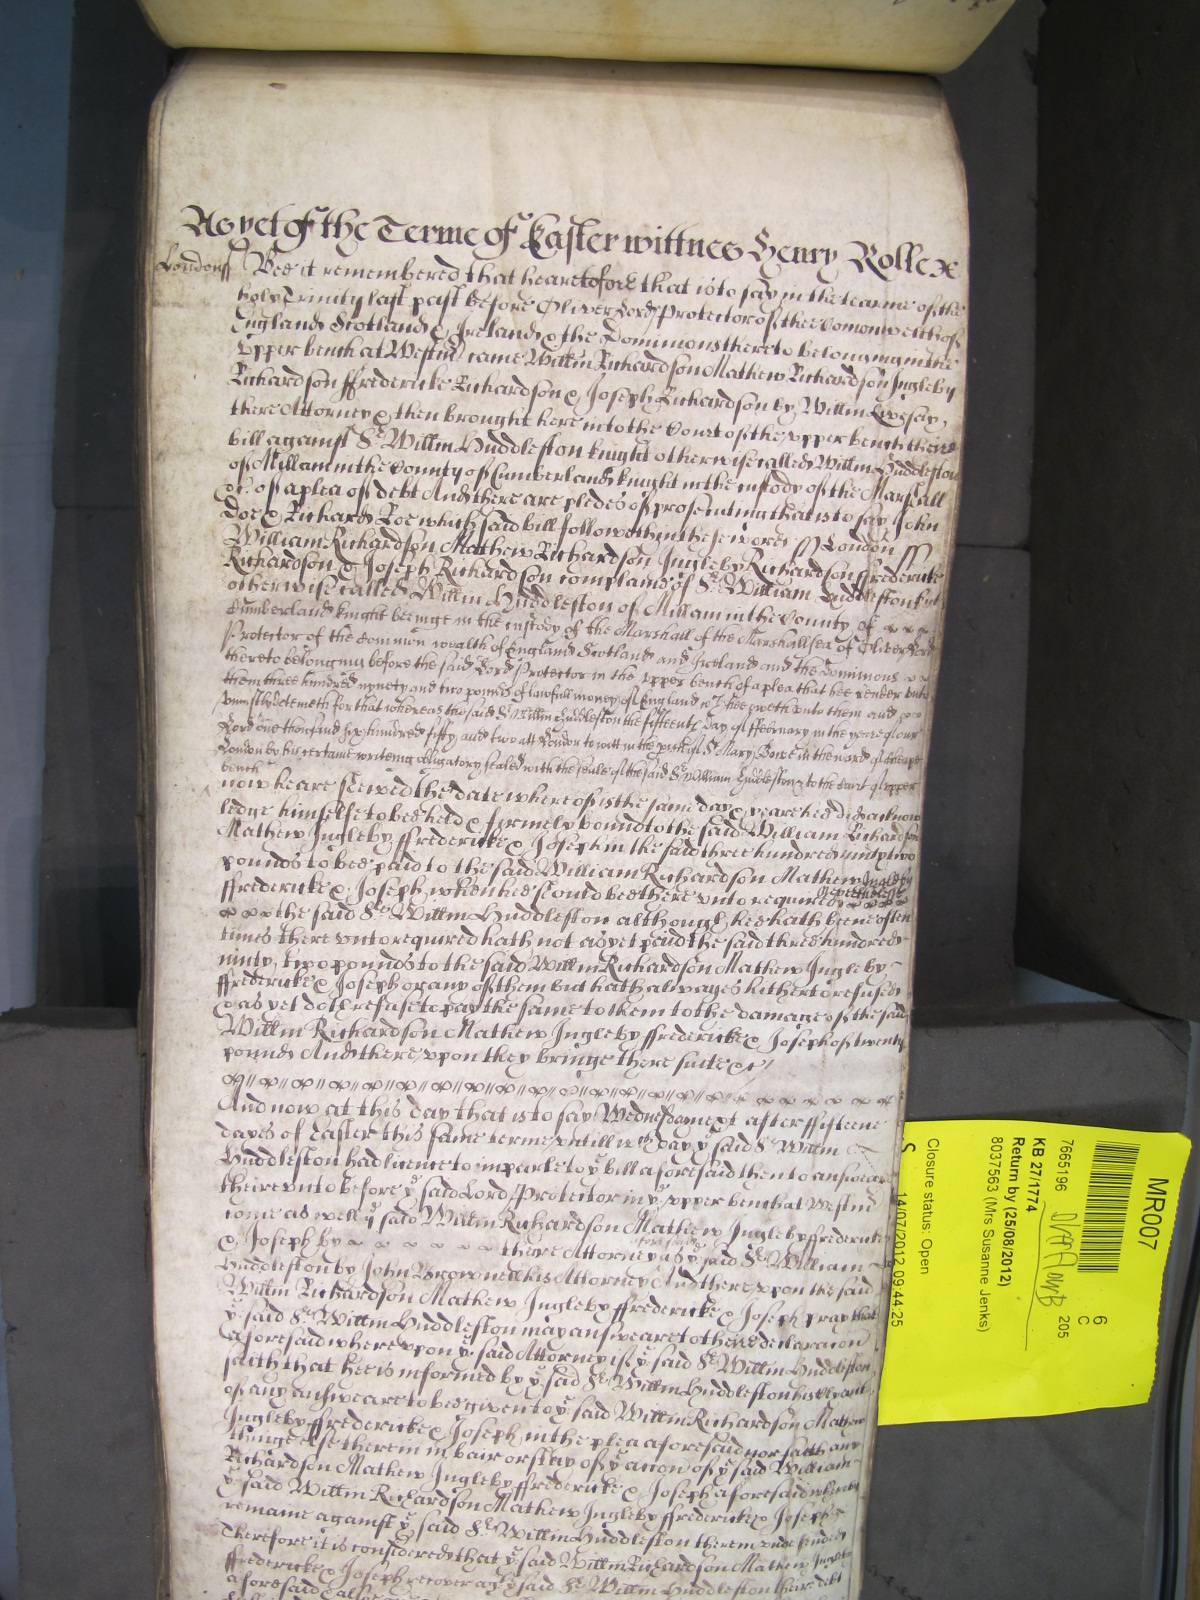 As yet of the Terme of Easter wittnes Henry Rolle
London ss Bee it remembered that hearetofore that is to say in the tearme of the
holy Trinity last past before Oliver Lord Protector of the Comonwelth of
England Scotland & Ireland & the Dominions thereto belonging in the
upper bench at Westm came Willm Richardson Mathew Richardson Ingleby
Richardson ffredericke Richardson & Joseph Richardson by Willm Livesay
there Attorney & then brought here into the Court of the upper bench there
bill against Sr Willm Huddleston knight otherwise called Willm Huddleston
of Millam in the County of Cumberland knight in the custody of the Marshall
&c of a plea of debt And there are pledes of prosecuting that is to say John
Doe & Richard Roe which said bill followeth in these words ss London ss
William Richardson Mathew Richardson Ingleby Richardson ffredericke
Richardson & Joseph Richardson complaine of Sr William Huddleston kt
otherwise called Willm Huddleston of Millam in the County of
Cumberland knight beeinge in the custody of the Marshall of the Marshallsea of Oliver Lord
Protector of the Common wealth of England Scotland and Ireland and the Dominions
thereto belonging before the said Lord Protector in the upper bench of a plea that hee render unto
them three hundred nynety and two pounds of lawfull money of England wch hee oweth unto them and
uniustly deteineth for that whereas the said Sr Willm Huddleston the fifteenth day of ffebruary in the yeare of our
Lord one thousand six hundred fifty and two att London to witt in the parish of St Mary Bowe in the ward of Cheape
London by his certaine writeing obligatory sealed with the seale of the said Sr William Huddleston & to the Court of upper
bench
now heare shewed the date whereof is the same day & yeare hee did acknow
ledge himselfe to bee held & firmely bound to the said William Richardson
Mathew Ingleby ffredericke & Joseph in the said three hundred ninty two
pounds to bee paid to the said William Richardson Mathew Ingleby
ffredericke & Joseph when hee should bee there unto required Neverthelesse
the said Sr Willm Huddleston although hee hath beene often
times there unto required hath not as yet paid the said three hundred
ninty two pounds to the said Willm Richardson Mathew Ingleby
ffredericke & Joseph or any of them but hath alwayes hitherto refused
& as yet doth refuse to pay the same to them to the damage of the said
Willm Richardson Mathew Ingleby ffredericke & Joseph of twenty
pounds And there upon they bringe there suite &c
And now at this day that is to say Wednesday next after fifteene
dayes of Easter this same terme untill wch day ye said Sr Willm
Huddleston had licence to imparle to ye bill aforesaid then to answeare
there unto before ye said Lord Protector in ye upper bench at Westm
come as well ye said Willm Richardson Mathew Ingleby ffredericke
& Joseph by there Attorney as ye said Sr William
Huddleston by John Browne his Attorney And there upon the said
Willm Richardson Mathew Ingleby ffredericke & Joseph pray that
ye said Sr Willm Huddleston may answeare to there declaracon
aforesaid where upon ye said Attorney of ye said Sr Willm Huddleston
saith that hee is informed by ye said Sr Willm Huddleston
of any answeare to bee given to ye said Willm Richardson Mathew
Ingleby ffredericke & Joseph in the plea aforesaid nor saith any
thinge else therein in bair or stay of ye accon of ye said William
Richardson Mathew Ingleby ffredericke & Joseph aforesaid whereby
ye said Willm Richardson Mathew Ingleby ffredericke & Joseph
remaine against ye said Sr Willm Huddleston therein undefended
Therefore it is considered that ye said Willm Richardson Mathew Ingleby
ffredericke & Joseph recover agt ye said Sr Willm Huddleston theire debt
aforesaid
MR007
6
C
205
7665196
KB 27/1774
Return by (25/08/2012)
8037563 (Mrs Susanne Jenks)
Closure status: Open
14/07/2012 09:44:25
S